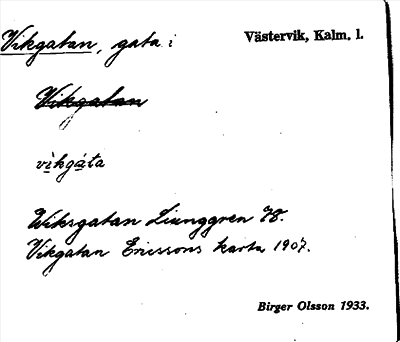 Vikgatan, gata i Västervik, Kalm. l.
Vikgatan
vìkgáta
Wiksgatan Ljunggren 78.
Vikgatan Ericssons karta 1907.
Birger Olsson 1933.